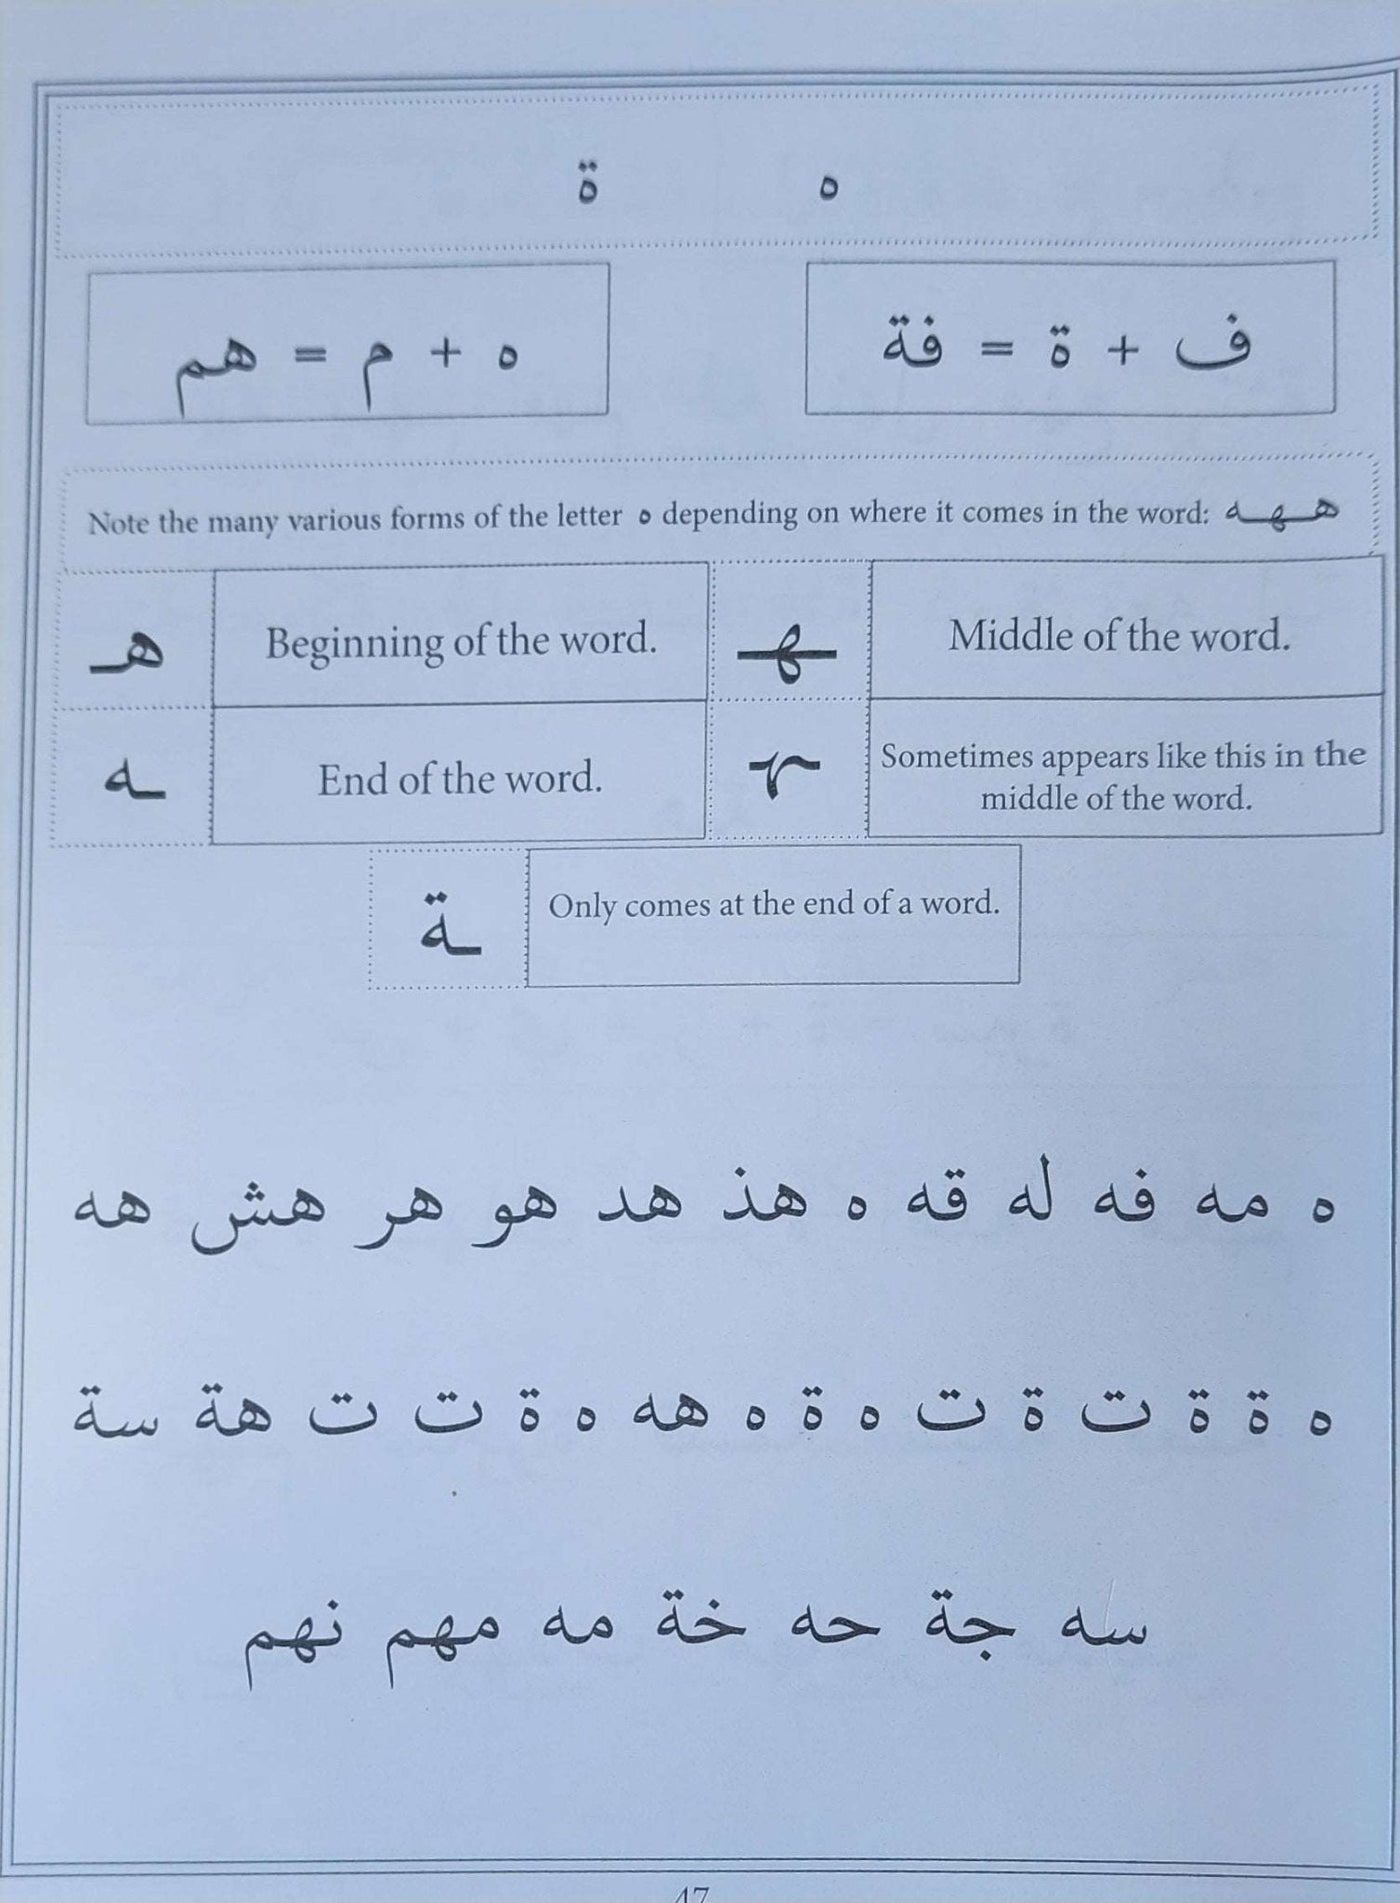 ه ة
ف + ة = فة
ه + م = هم
Note the many various forms of the letter ه depending on where it comes in the word: ههه
هـ Beginning of the word.
ـهـ Middle of the word.
ـه End of the word.
Sometimes appears like this in the
middle of the word.
ـة Only comes at the end of a word.
ه مه فه له قه ه هذ هد هو هر هش هه
ه ة ة ت ة ت ه ة ه هه ه ة ت ت هة سة
سه جة حه خة مه مهم نهم
47